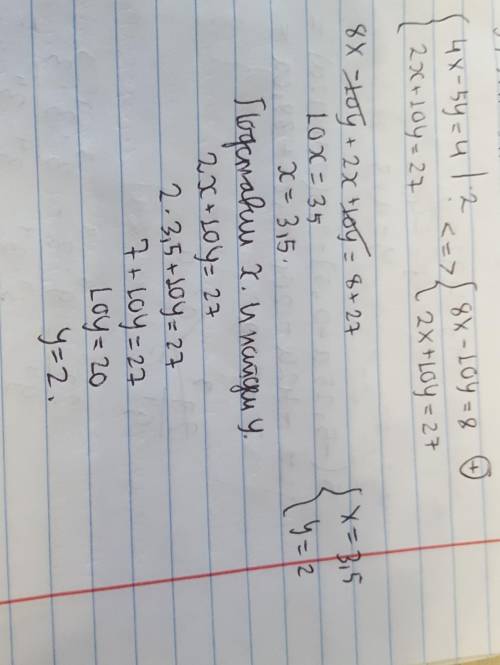 { 4x - 5y = 4 | · 2 <=> { 8x - 10y = 8 (+)
{ 2x + 10y = 27 { 2x + 10y = 27
8x - 10y + 2x + 10y = 8 + 27
10x = 35
x = 3,5.
{ x = 3,5
{ y = 2
Подставим x. и найдём y.
2x + 10y = 27
2 · 3,5 + 10y = 27
7 + 10y = 27
10y = 20
y = 2.